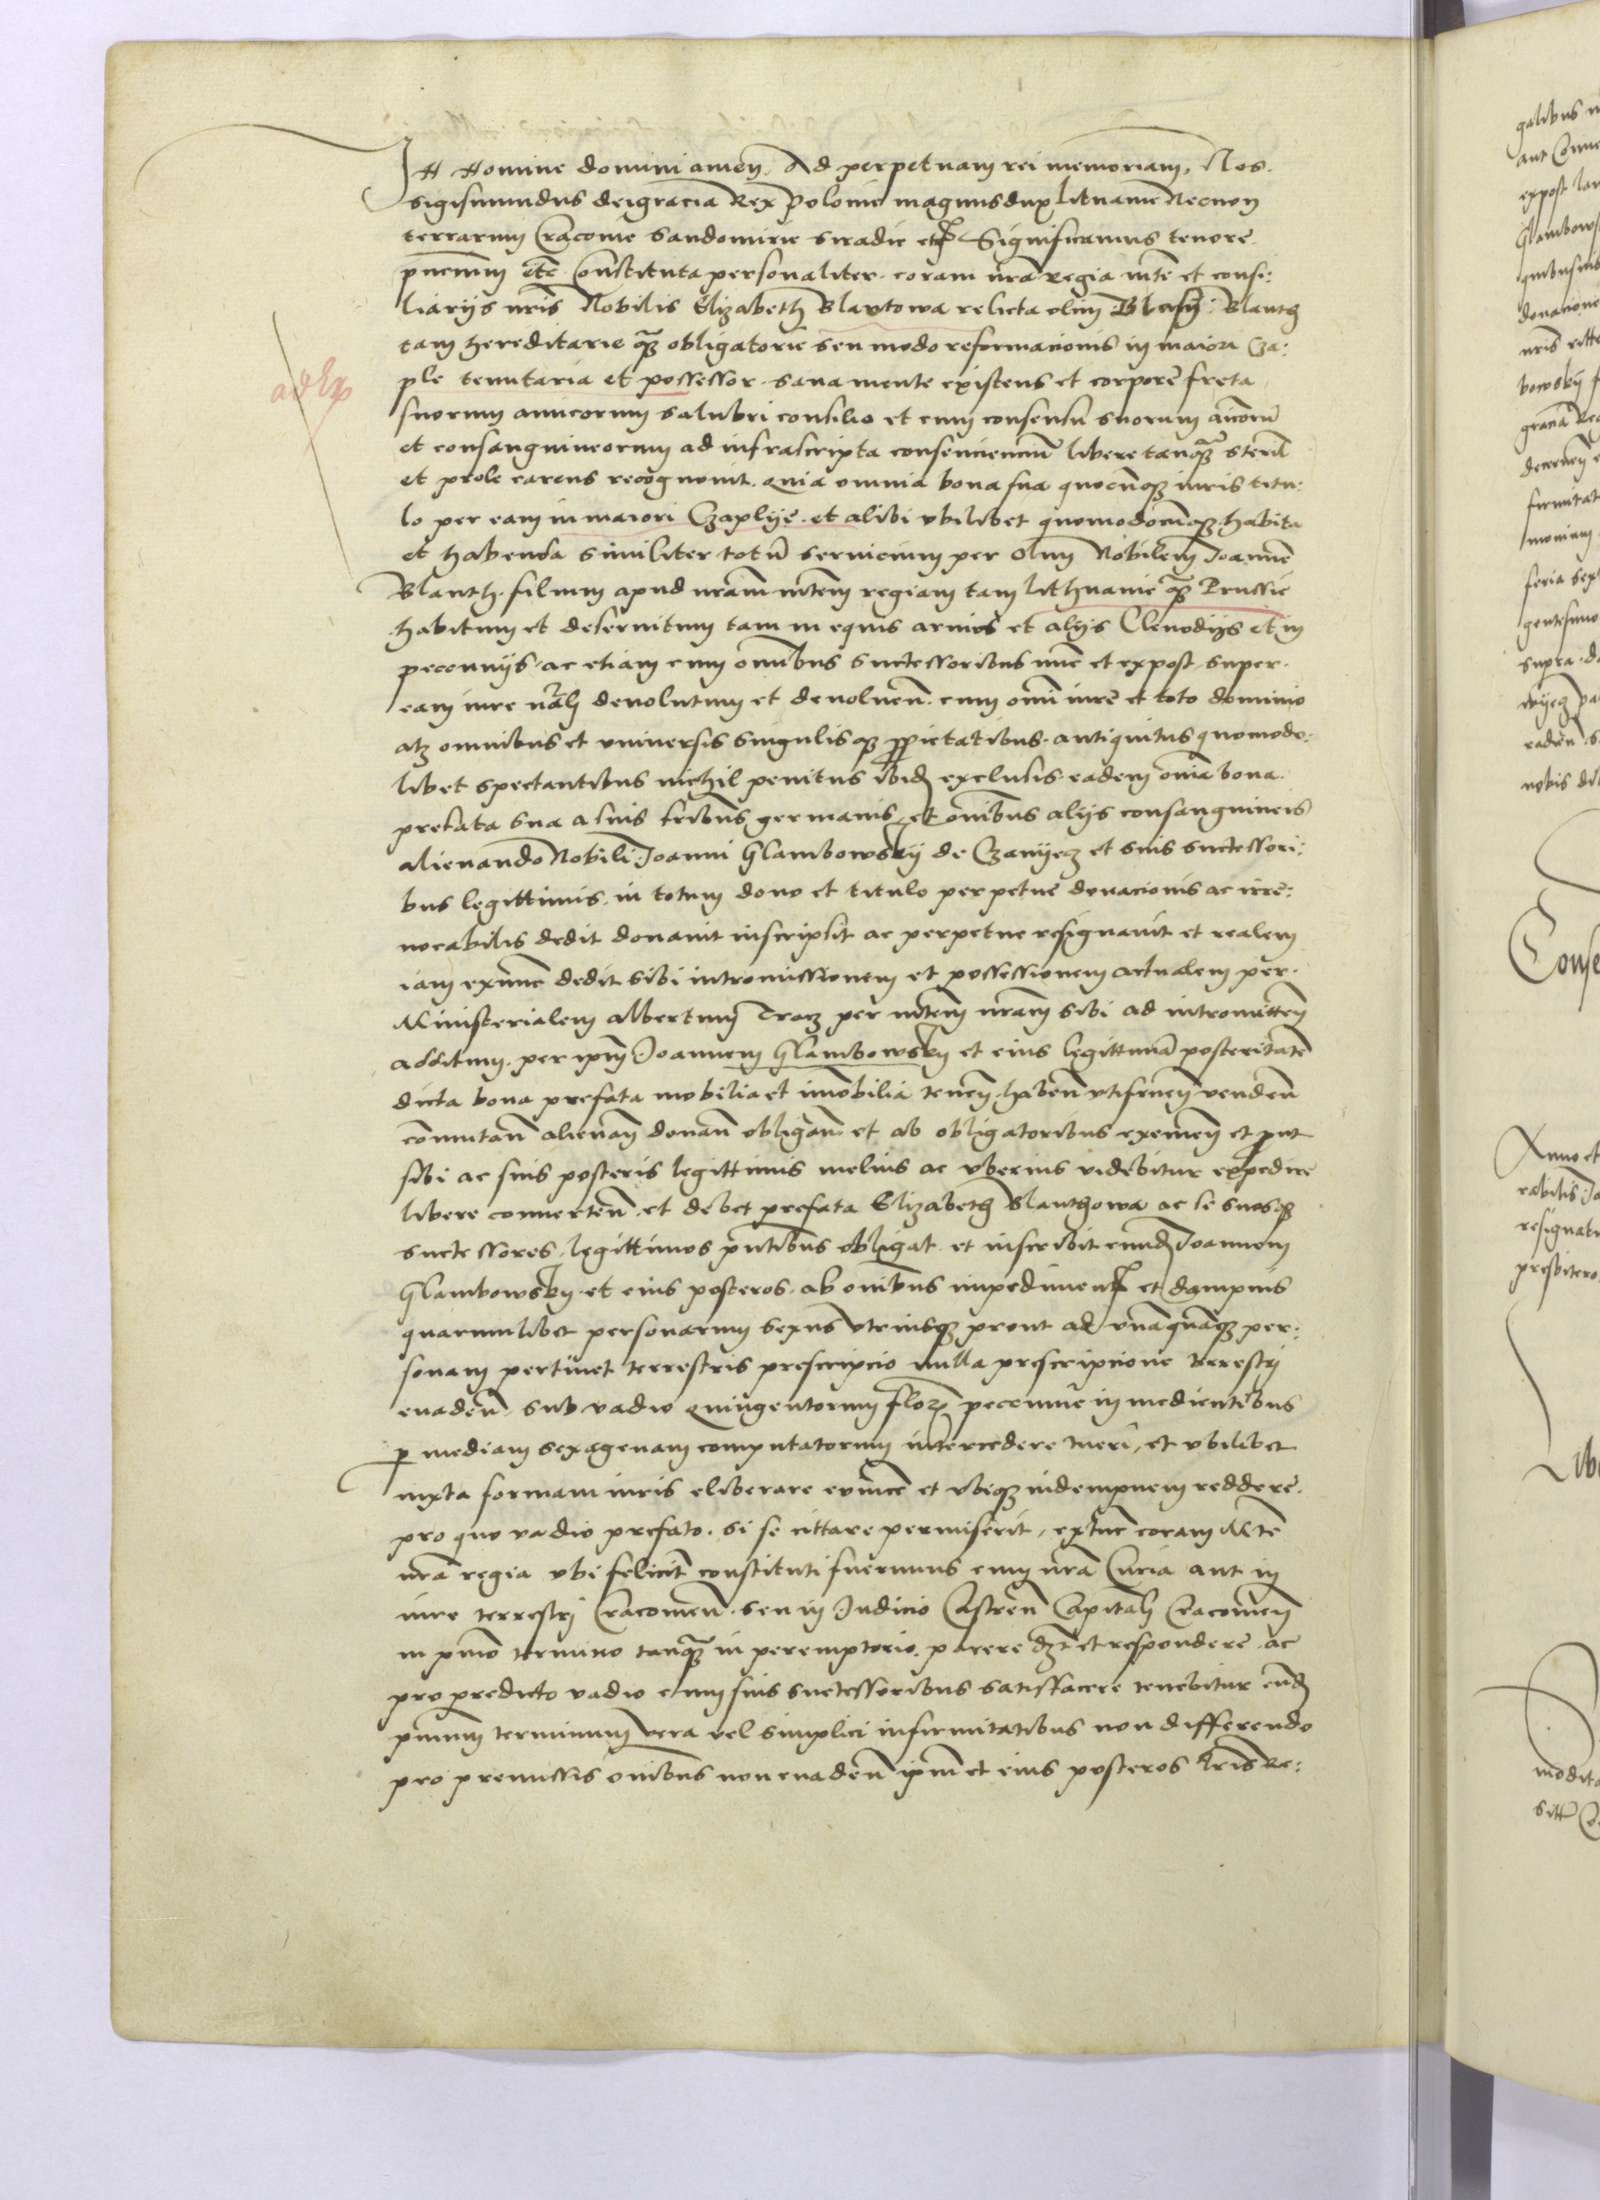 In Nomine domini amen. Ad perpetuam rei memoriam. Nos
Sigismundus dei gracia Rex Polonie magnus dux lituanie Necnon
terrarum Cracovie Sandomirie Siradie etc Significamus tenore
pntium etc Constituta personaliter coram nra Regia mte et consi:
liarijs nris Nobilis Elizabeth Blantowa relicta olim Blasij Blanth
tam hereditarie q3 obligatorie seu modo reformacionis in maiori Cza:
ple tenutaria et possessor sana mente existens et corpore freta
suorum amicorum salubri consilio et cum consensu suorum aicoru
et consanguineorum ad infrascripta consenciencium libere tanq3 steril
et prole carens recognovit. Quia omnia bona sua quocunq3 iuris titu:
lo per eam in maiori Czaplije et alibi ubilibet quomodocunq3 habita
et habenda similiter totu servicium per olim Nobilem Joanne
Blanth filium apud nram mtem regiam tam lithuanie q3 Prussie
habitum et deservitum tam in equis armis et alijs Clenodijs et in
pecunijs ac etiam cum omnibus successoribus nunc et expost super
eam iure nrali devolutum et devolven cum omi iure et toto dominio
atq3 omnibus et universis singulisq3 pprietatibus antiquitus quomodo:
libet spectantibus nichil penitus ibid exclusis eadem omia bona
prefata sua a suis fribus germanis et omibus alijs consanguineis
alienando Nobili Joanni Glambowskij de Czanyecz et suis successori:
bus legittimis in totum dono et titulo perpetue donacionis ac irre:
vocabilis dedit donavit inscripsit ac perpetue resignavit et realem
iam exnunc dedit sibi intromissionem et possessionem actualem per
Ministerialem Albertum Trocz per mtem nram sibi ad intromitten
additum per ipm Joannem Glambowsky et eius legittima posteritate
dicta bona prefata mobilia et imobilia tenen haben utifruen venden
comutan alienan donan obligan et ab obligatoribus exemen et put
sibi ac suis posteris legittimis melius ac uberius videbitur expedire
libere converten et debet prefata Elizabeth Blanthowa ac se suosq3
successores legittimos pntibus obligat et inscribit eund Joannem
Glambowsky et eius posteros ab omibus impediment et dampnis
quarumlibet personarum sexus utriusq3 prout ad unaquaq3 per:
sonam pertinet terrestris prescripcio nulla prescripcione terrestrj
evaden sub vadio quingentorum flor pecunie in medientibus
p mediam sexagenam computatorum intercedere tueri et ubilibet
iuxta formam iuris eliberare evince et ubiq3 indempnem reddere
pro quo vadio prefato si se cittare permiserit extunc coram Mte
nra regia ubi felicit constituti fuerimus cum nra Curia aut in
iure terrestrj Cracovien seu in Judicio Castren Capitali Cracovien
in pmo termino tanq3 in peremptorio parere d3t et respondere ac
pro predicto vadio cum suis successoribus satisfacere tenebitur eund
pmum terminum vera vel simplici infirmitatibus non differendo
pro premissis omibus non evaden ipm et eius posteros lris Re: